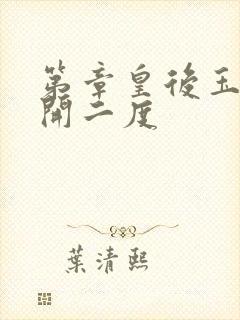 第章皇後玉
開二度
葉清熙